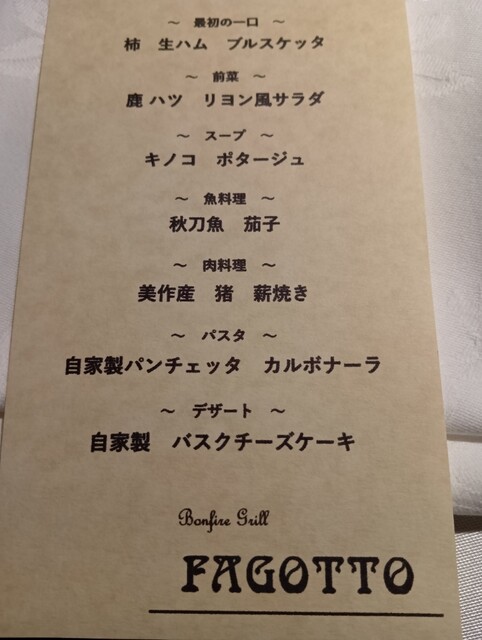 ～ 最初の一口 ～
柿 生ハム ブルスケッタ
～ 前菜 ～
鹿ハツ リヨン風サラダ
～ スープ ～
キノコ ポタージュ
～ 魚料理 ～
秋刀魚 茄子
～ 肉料理 ～
美作産 猪 薪焼き
～ パスタ ～
自家製パンチェッタ カルボナーラ
～ デザート ～
自家製 バスクチーズケーキ
Bonfire Grill
FAGOTTO